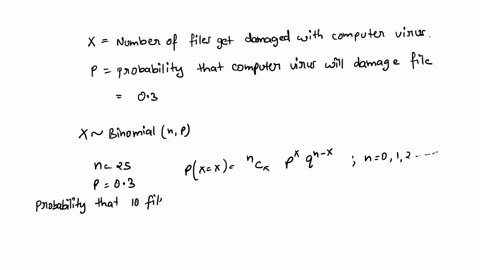 X = Number of files get damaged with computer virus.
P = probability that computer virus will damage file
= 0.3
X ~ Binomial (n, p)
n = 25
P(X=x) = ⁿCₓ pˣ qⁿ⁻ˣ ; n=0,1,2 .....
P = 0.3
Probability that 10 fil